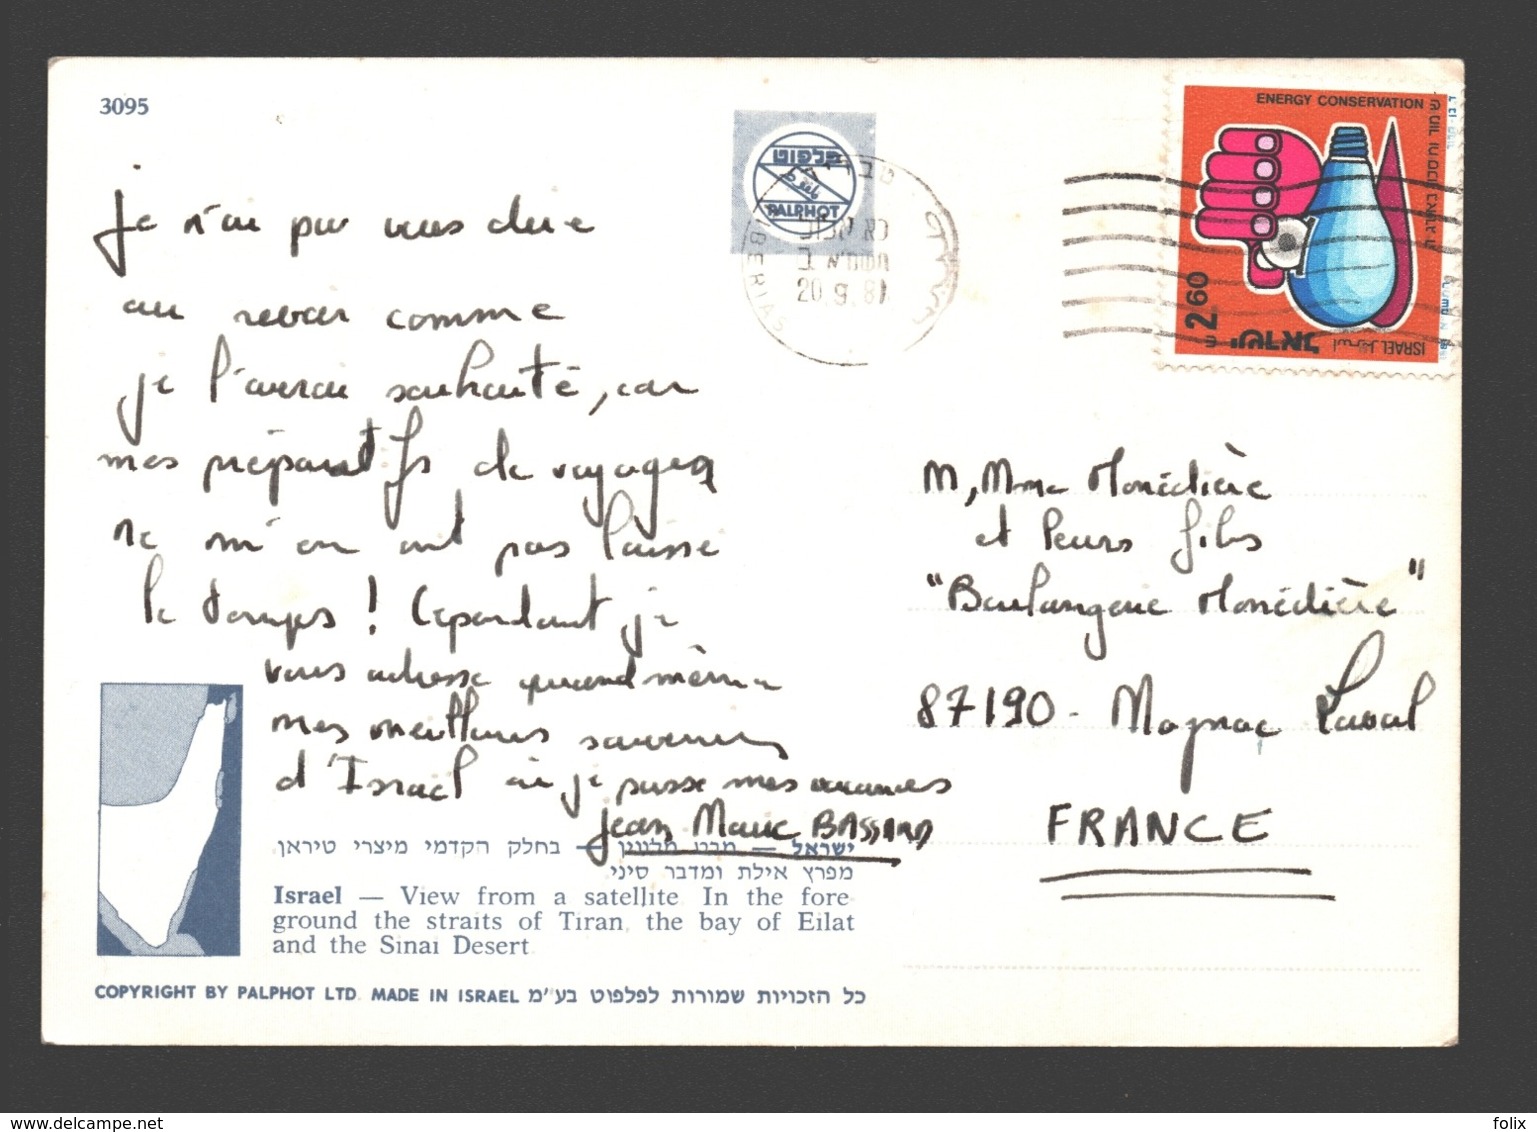 3095
פלפוט
PALPHOT
טבריה
TIBERIAS
20.9.81
ENERGY CONSERVATION
2.60
ישראל
ISRAEL
Je n'ai pu vous dire
au revoir comme
je l'aurai souhaité, car
mes préparatifs de voyages
ne m'en ont pas laissé
le temps ! Cependant je
vous adresse quand même
mes meilleurs souvenirs
d'Israël où je passe mes vacances
Jean Marc BASSARD
M, Mme Monédière
et leurs fils
"Boulangerie Monédière"
87190 - Magnac Laval
FRANCE
ישראל — מבט מלווין — בחלק הקדמי מיצרי טיראן,
מפרץ אילת ומדבר סיני.
Israel — View from a satellite. In the fore
ground the straits of Tiran, the bay of Eilat
and the Sinai Desert.
COPYRIGHT BY PALPHOT LTD. MADE IN ISRAEL כל הזכויות שמורות לפלפוט בע"מ
delcampe.net
felix